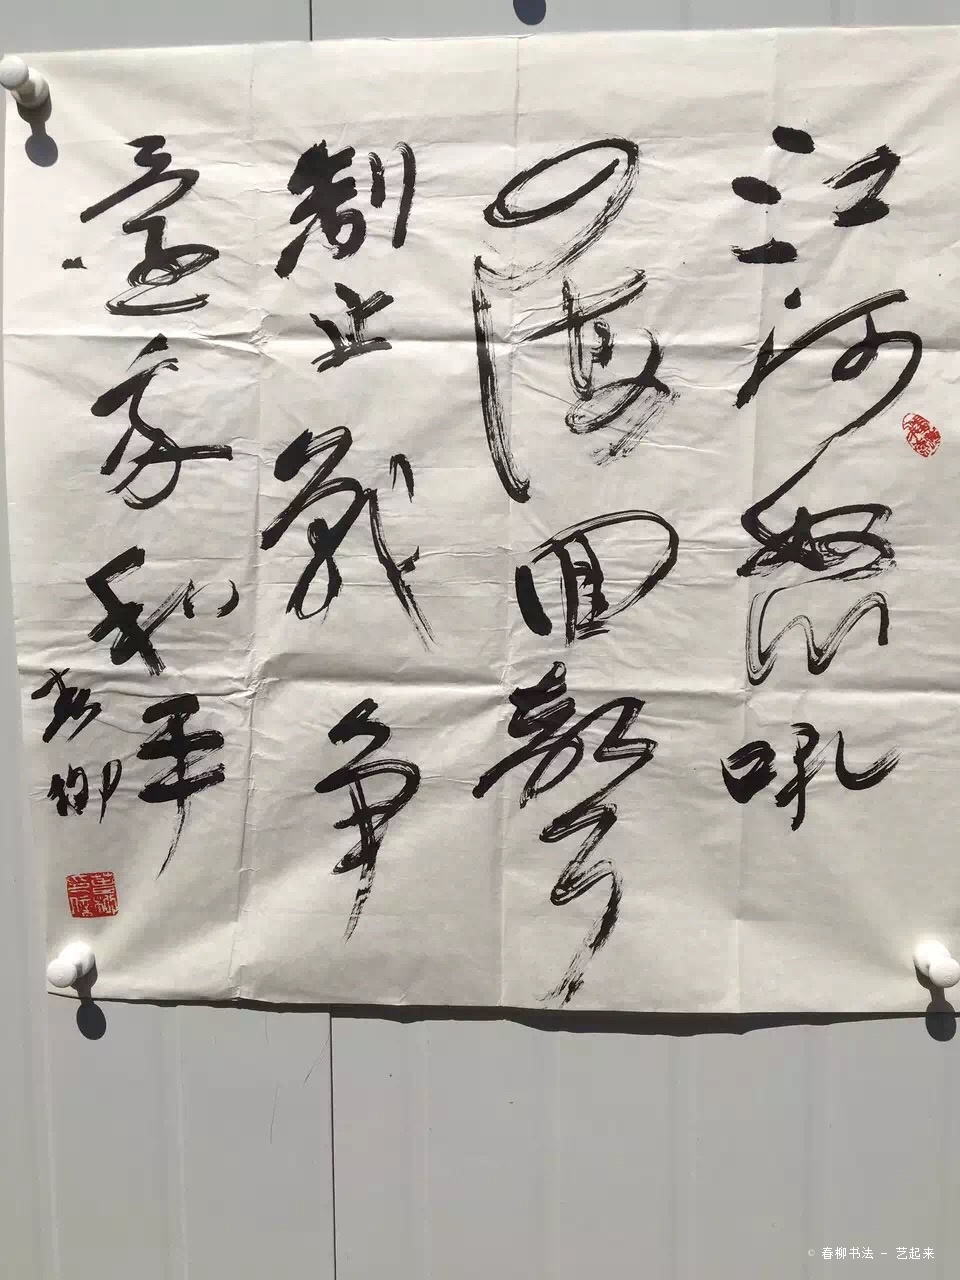 江河怒吼
四海回聲
制止戰争
還我和平
春柳
© 春柳书法 - 艺起来